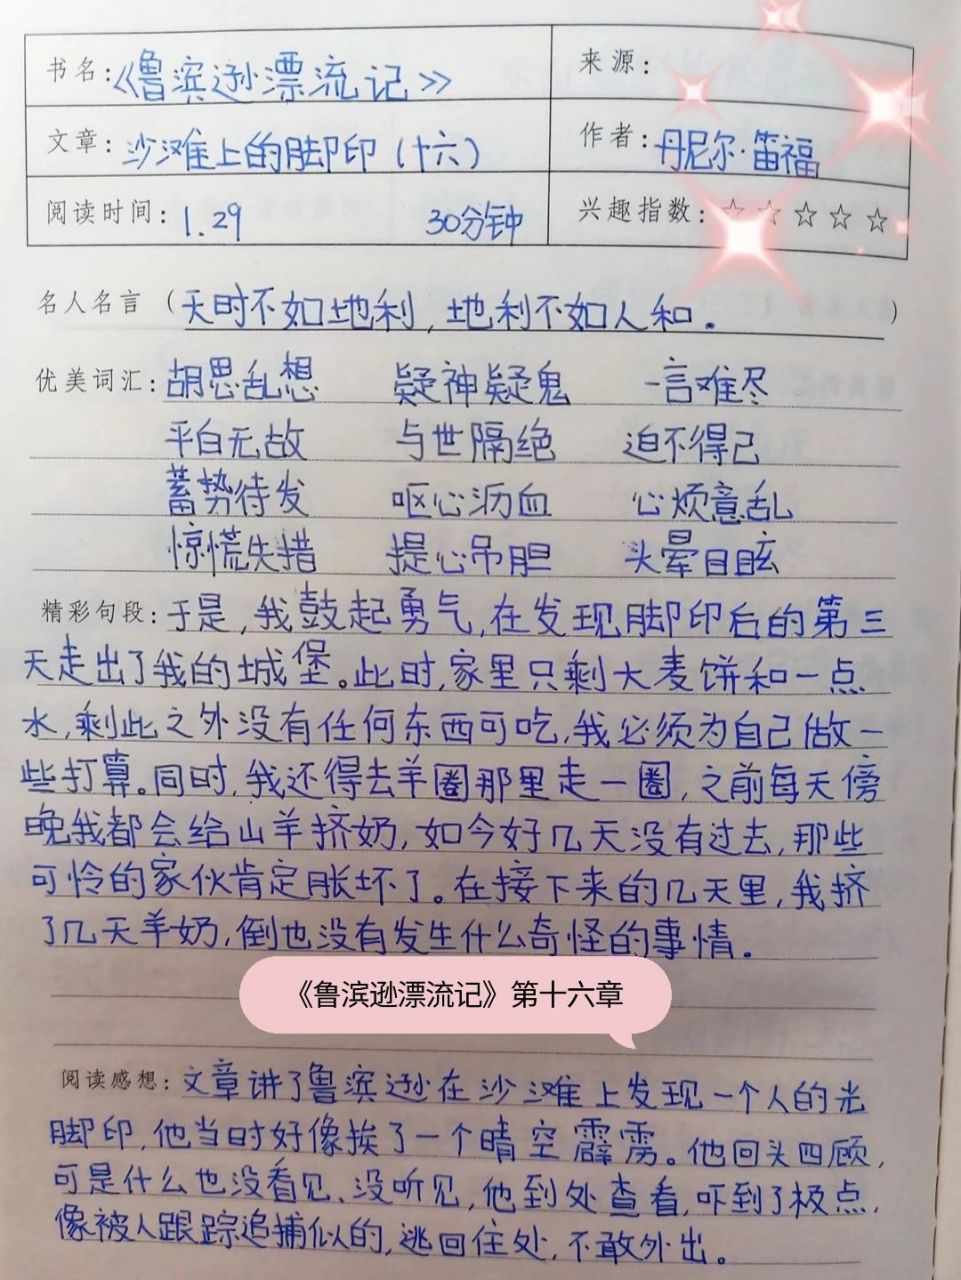 书名：《鲁滨逊漂流记》 来源：
文章：沙滩上的脚印（十六） 作者：丹尼尔·笛福
阅读时间：1.29 30分钟 兴趣指数：☆☆☆☆☆
名人名言（天时不如地利，地利不如人和。）
优美词汇：胡思乱想 疑神疑鬼 一言难尽
平白无故 与世隔绝 迫不得已
蓄势待发 呕心沥血 心烦意乱
惊慌失措 提心吊胆 头晕目眩
精彩句段：于是，我鼓起勇气，在发现脚印后的第三
天走出了我的城堡。此时，家里只剩大麦饼和一点
水，剩此之外没有任何东西可吃，我必须为自己做一
些打算。同时，我还得去羊圈那里走一圈，之前每天傍
晚我都会给山羊挤奶，如今好几天没有过去，那些
可怜的家伙肯定胀坏了。在接下来的几天里，我挤
了几天羊奶，倒也没有发生什么奇怪的事情。
《鲁滨逊漂流记》第十六章
阅读感想：文章讲了鲁滨逊在沙滩上发现一个人的光
脚印，他当时好像挨了一个晴空霹雳。他回头四顾，
可是什么也没看见、没听见，他到处查看，吓到了极点，
像被人跟踪追捕似的，逃回住处，不敢外出。